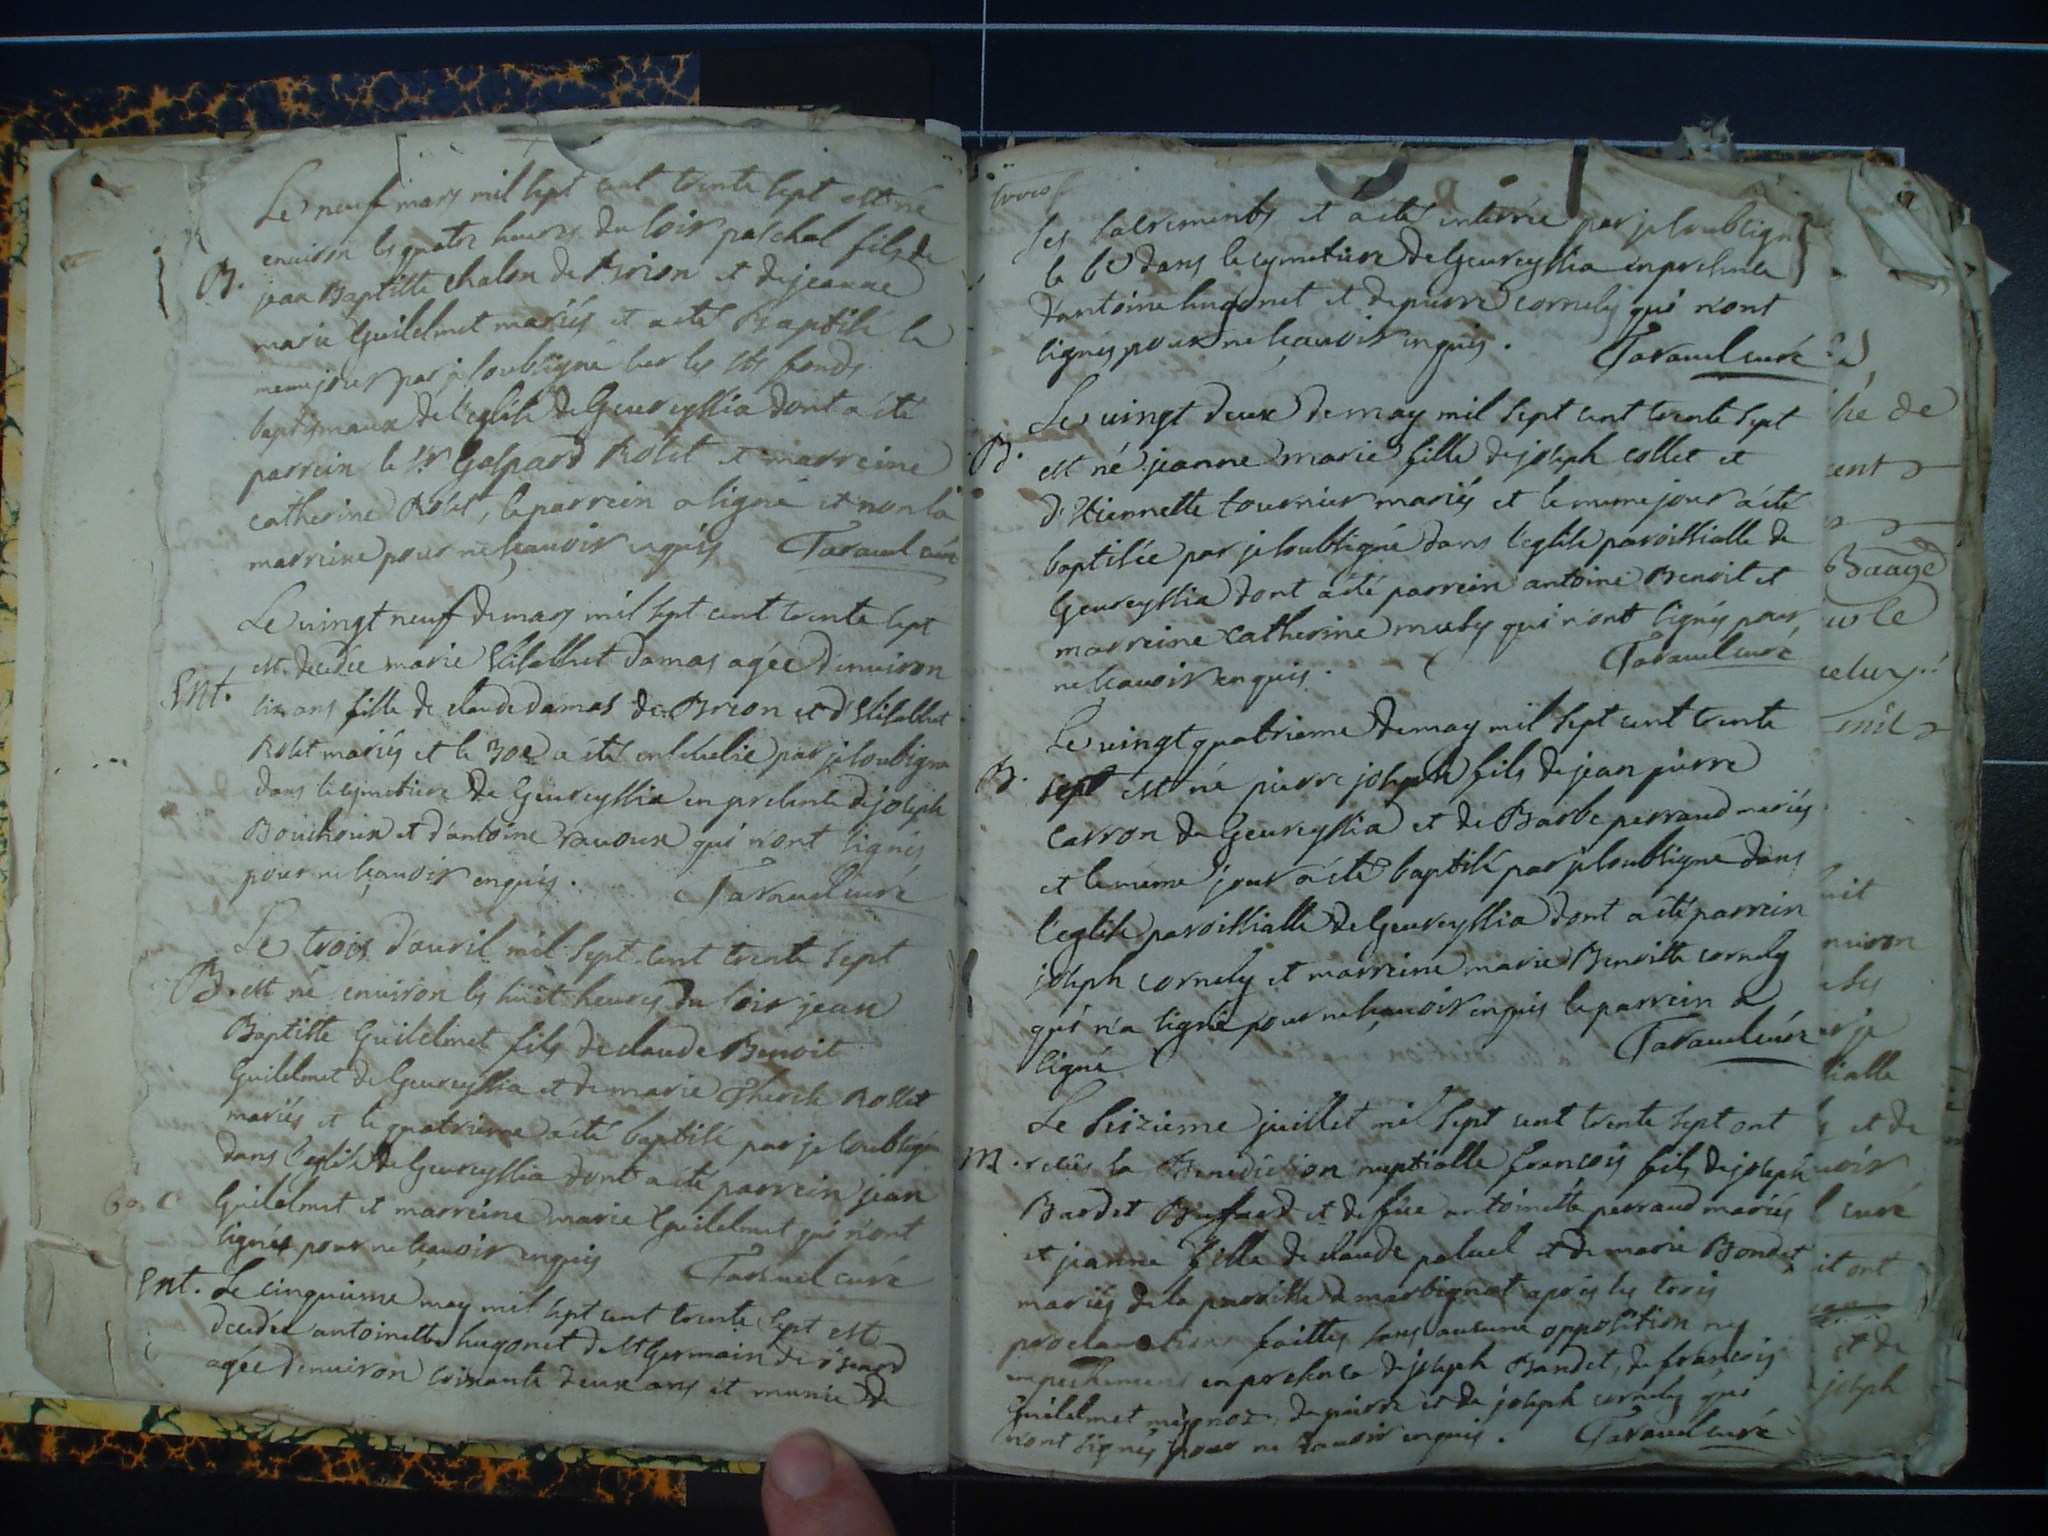 Le neuf mars mil sept cent trente sept est né
environ les quatre heures du soir paschal fils de
B. jean Baptiste chalon de Brion et de jeanne
marie Guilelmet mariés et a eté Baptisé le
meme jour par je soubsigné sur les sts fonds
baptismaux de l'eglise de Geureyssia dont a été
parrein le Sr Gaspard Rolet et marreine
catherine Rolet, le parrein a signé et non la
marreine pour ne sçauoir enquis Tavauel curé
Le vingt neuf de mars mil sept cent trente sept
est decedée marie Elisabhet damas agée d'enuiron
Ent. six ans fille de claude damas de Brion et d'Elisabhet
Rolet mariés et le 30e a été enseuelie par je soubsigné
dans le cymetiere de Geureyssia en presence de joseph
Bouchoux et d'antoine rauoux qui n'ont signés
pour ne sçauoir enquis. Tavauel curé
Le trois d'auril mil sept cent trente sept
B. est né enuiron les huit heures du soir jean
Baptiste Guilelmet fils de claude Benoit
Guilelmet de Geureyssia et de marie Therese Rollet
mariés et le quatrieme a été baptisé par je soubsigné
dans l'eglise de Geureyssia dont a été parrein jean
Guilelmet et marreine marie Guilelmet qui n'ont
signés pour ne sçauoir enquis Tavauel curé
Ent. Le cinquieme may mil sept cent trente sept est
decedée antoinette hugonet de St Germain de
agée d'enuiron soixante deux ans et munie de
ses sacrements et a eté enterrée par je soubsigné
le 6e dans le cymetiere de Geureyssia en presence
d'antoine hugonet et de pierre cornely qui n'ont
signés pour ne sçauoir enquis. Tavauel curé
Le vingt deux de may mil sept cent trente sept
B. est né jeanne marie fille de joseph collet et
d'Etiennette tournier mariés et le meme jour a été
baptisée par je soubsigné dans l'eglise paroissialle de
Geureyssia dont a été parrein antoine Benoit et
marreine catherine qui n'ont signés pour
ne sçauoir enquis. Tavauel curé
Le vingt quatrieme de may mil sept cent trente
B. sept est né pierre joseph fils de jean pierre
carron de Geureyssia et de Barbe perraud mariés
et le meme jour a été baptisé par je soubsigné dans
l'eglise paroissialle de Geureyssia dont a été parrein
joseph cornely et marreine marie Benoitte cornely
qui n'a signé pour ne sçauoir enquis le parrein a
signé Tavauel curé
Le seizieme juillet mil sept cent trente sept ont
M. reçus la Benediction nuptialle françois fils de joseph
Bardet et de fûe antoinette perraud mariés
et jeanne fille de claude paluel et de marie Bondet
mariés de la paroisse de marbignat apres les trois
proclamations faittes sans aucune opposition ny
empechement en presence de joseph Bandet, de françois
Guilelmet de pierre et de joseph cornely qui
n'ont signés pour ne sçauoir enquis. Tavauel curé